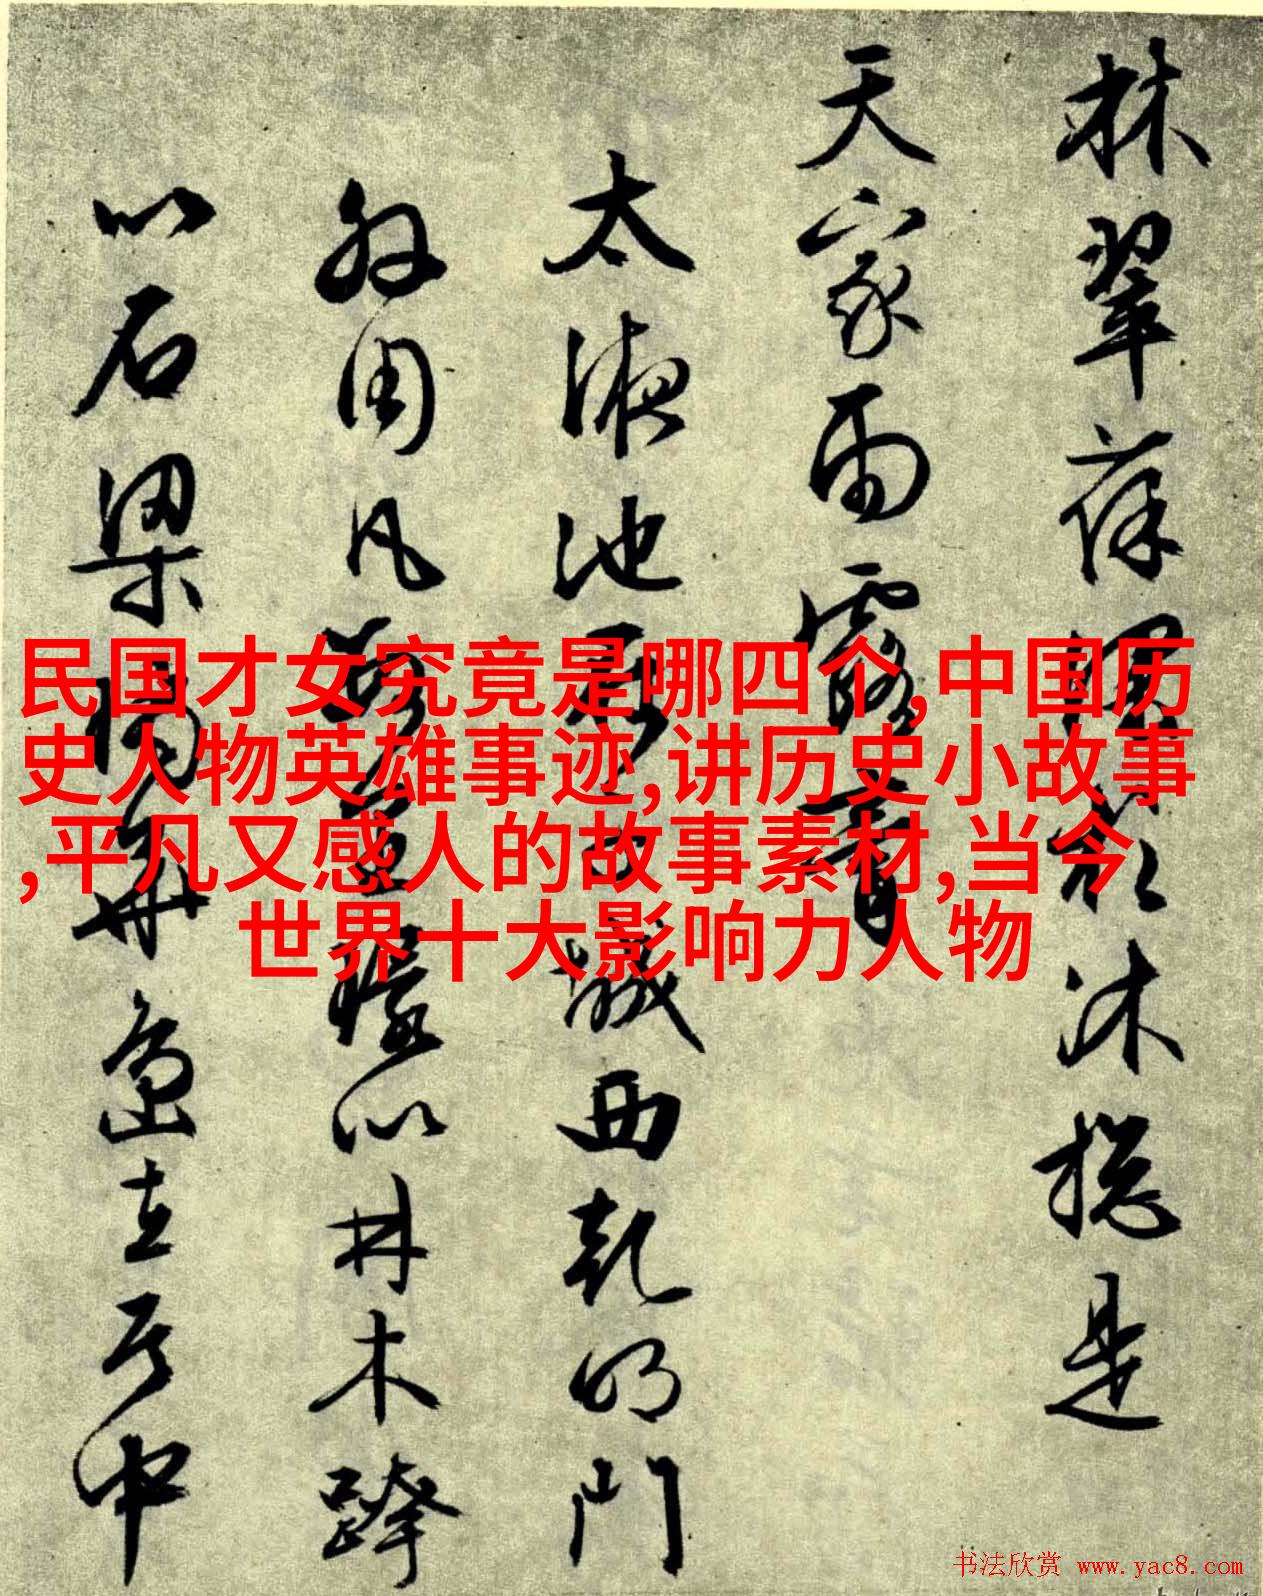 林翠葆沐揔是
天家雨露膏
太液池在子城西乾明門
外周凡數里以木跨
以石梁中
民国才女究竟是哪四个,中国历
史人物英雄事迹,讲历史小故事
,平凡又感人的故事素材,当今
世界十大影响力人物
书法欣赏 www.yac8.com